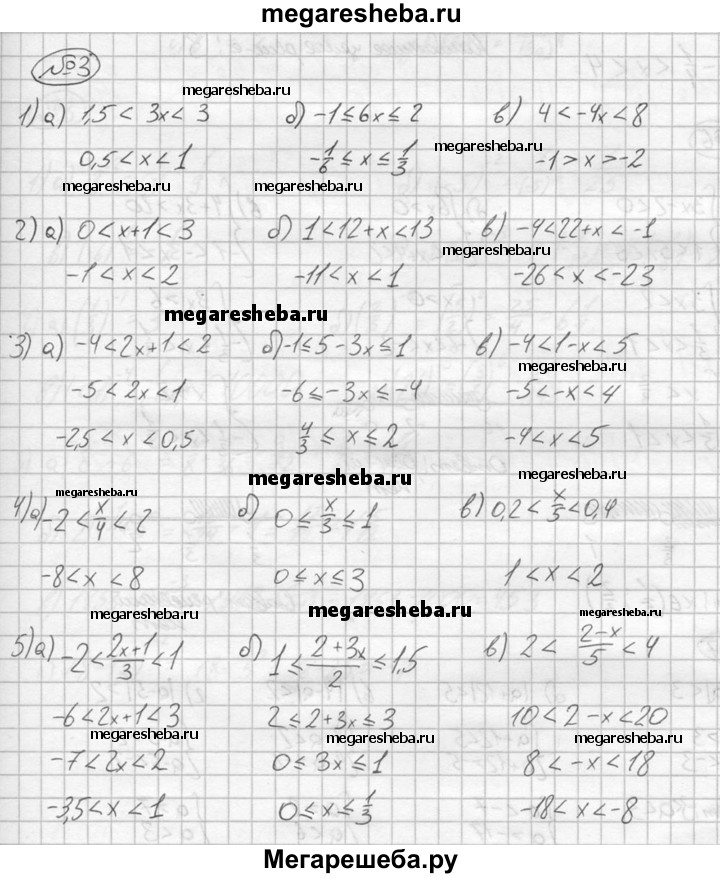 megaresheba.ru
№3
megaresheba.ru
1) а) 1,5 < 3x < 3   б) -1 ≤ 6x ≤ 2   в) 4 < -4x < 8
megaresheba.ru
0,5 < x < 1   -1/6 ≤ x ≤ 1/3   -1 > x > -2
megaresheba.ru megaresheba.ru
2) а) 0 < x+1 < 3   б) 1 < 12+x < 13   в) -4 < 22+x < -1
megaresheba.ru
-1 < x < 2   -11 < x < 1   -26 < x < -23
megaresheba.ru
3) а) -4 < 2x+1 < 2   б) -1 ≤ 5-3x ≤ 1   в) -4 < 1-x < 5
megaresheba.ru
-5 < 2x < 1   -6 ≤ -3x ≤ -4   -5 < -x < 4
-2,5 < x < 0,5   4/3 ≤ x ≤ 2   -4 < x < 5
megaresheba.ru megaresheba.ru
megaresheba.ru
4) а) -2 < x/4 < 2   б) 0 ≤ x/3 ≤ 1   в) 0,2 < x/5 < 0,4
-8 < x < 8   0 ≤ x ≤ 3   1 < x < 2
megaresheba.ru megaresheba.ru megaresheba.ru
5) а) -2 < (2x+1)/3 < 1   б) 1 ≤ (2+3x)/2 ≤ 1,5   в) 2 < (2-x)/5 < 4
-6 < 2x+1 < 3   2 ≤ 2+3x ≤ 3   10 < 2-x < 20
megaresheba.ru megaresheba.ru megaresheba.ru
-7 < 2x < 2   0 ≤ 3x ≤ 1   8 < -x < 18
-3,5 < x < 1   0 ≤ x ≤ 1/3   -18 < x < -8
Мегарешеба.ру